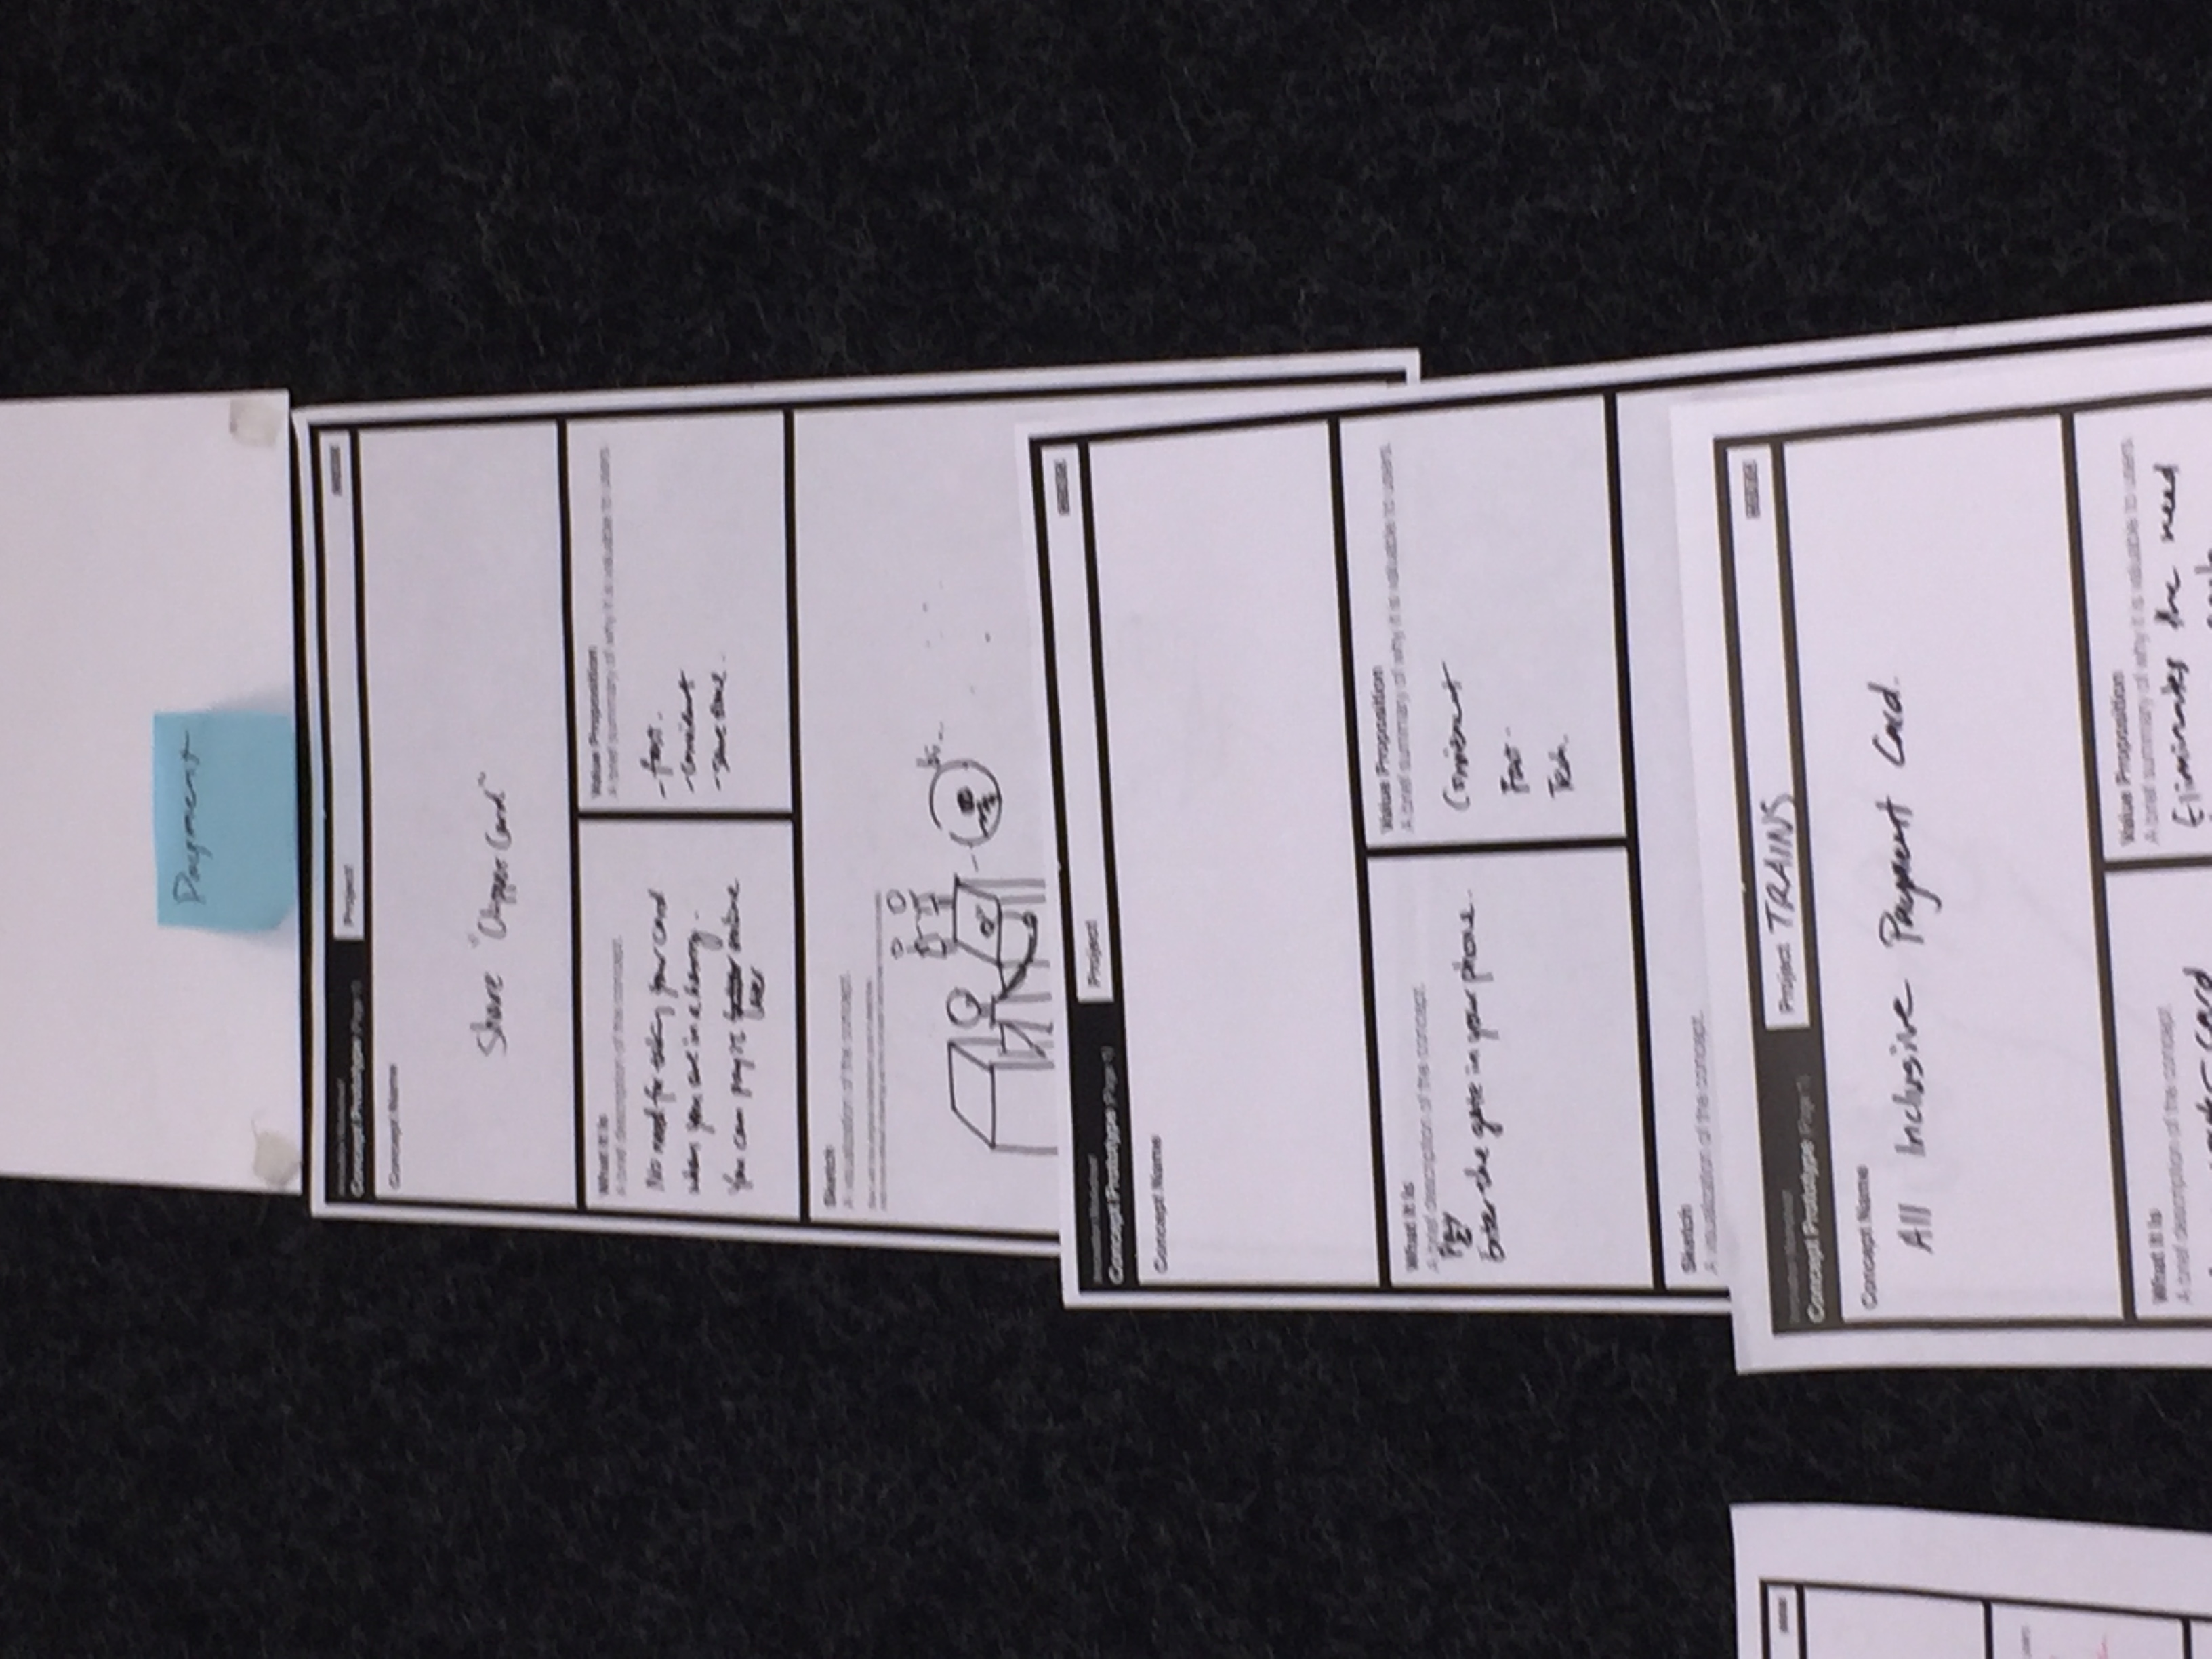 Payment
Concept Prototype (Page 1)
Project
Concept Name
Share "Clipper Card"
What It Is
A brief description of the concept.
No need for taking your card
when you are in a hurry.
You can pay it online
later
Value Proposition
A brief summary of why it is valuable to users.
- fast.
- convenient
- save time.
Sketch
A visualization of the concept.
Concept Prototype (Page 1)
Project
Concept Name
What It Is
A brief description of the concept.
Pay
&
Enter the gate in your phone.
Value Proposition
A brief summary of why it is valuable to users.
Convenient
Fast
Tech.
Sketch
A visualization of the concept.
Concept Prototype (Page 1)
Project TRAINS
Concept Name
All Inclusive Payment Card.
What It Is
A brief description of the concept.
card
Value Proposition
A brief summary of why it is valuable to users.
Eliminates the need